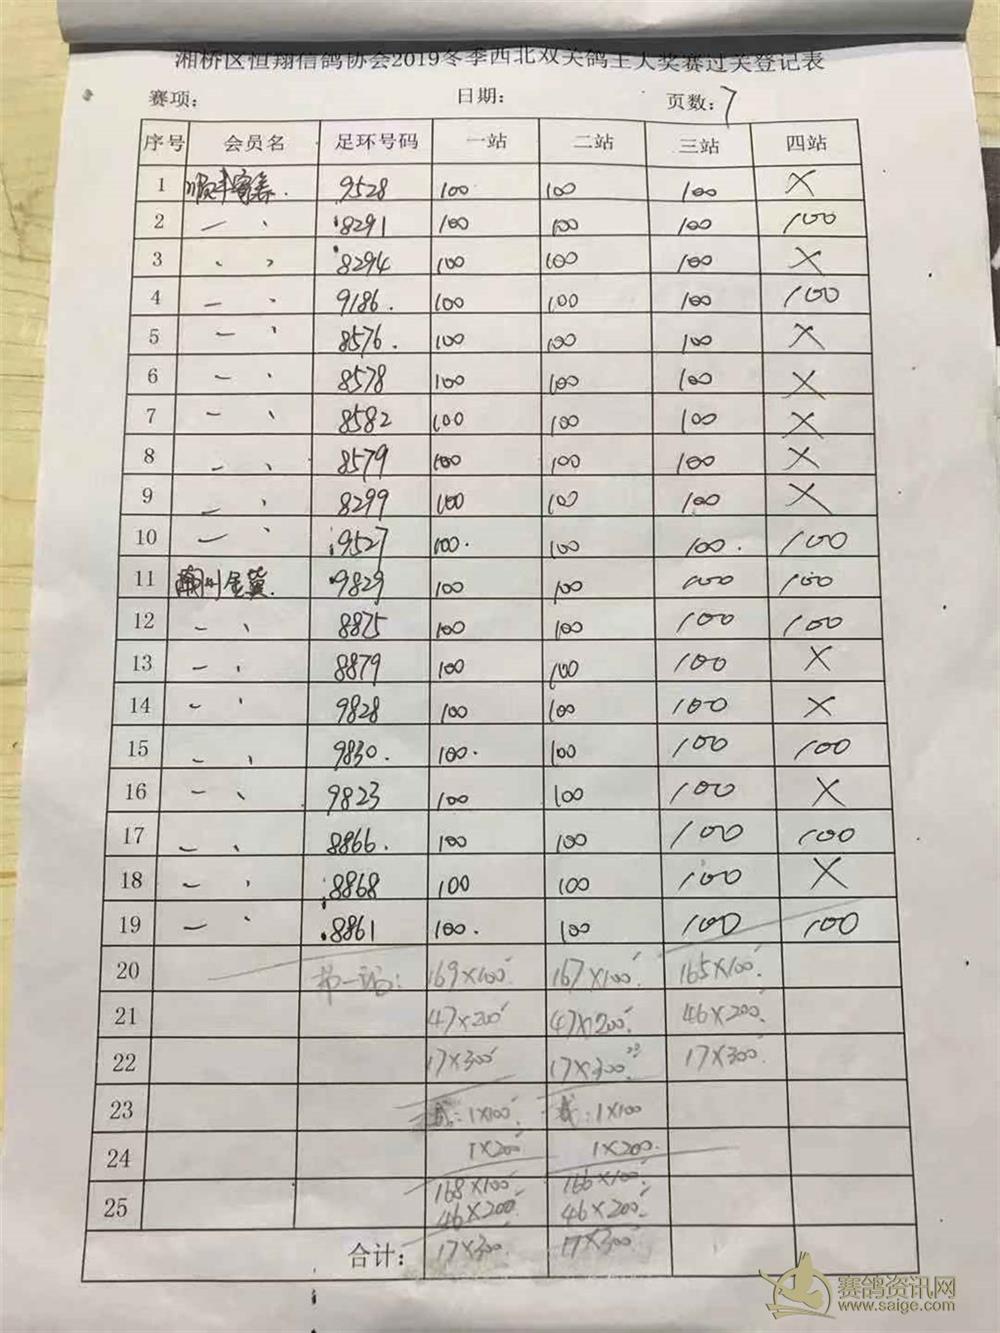 湘桥区恒翔信鸽协会2019冬季西北双关鸽王大奖赛过关登记表
赛项: 日期: 页数: 7
序号 会员名 足环号码 一站 二站 三站 四站
1 顺丰 9528 100 100 100 X
2 — 、 8291 100 100 100 100
3 、 、 8294 100 100 100 X
4 — 、 9186. 100 100 100 100
5 — 、 8576. 100 100 100 X
6 — 、 8578 100 100 100 X
7 — 、 8582 100 100 100 X
8 — 、 8579 100 100 100 X
9 — 、 8299 100 100 100 X
10 — 、 9527 100. 100 100. 100
11 9829 100 100 100 100
12 — 、 8875 100 100 100 100
13 — 、 8879 100 100 100 X
14 — 、 9828 100 100 100 X
15 — 、 9830. 100. 100 100 100
16 — 、 9823 100 100 100 X
17 — 、 8866. 100 100 100 100
18 — 、 8868 100 100 100 X
19 — 、 8861 100. 100 100 100
20 第一站: 169×100 167×100 165×100
21 47×200 47×200 46×200
22 17×300 17×300 17×300
23 1×100 1×100
24 1×200 1×200
25 168×100 166×100
46×200 46×200
合计: 17×300 17×300
赛鸽资讯网
www.saige.com